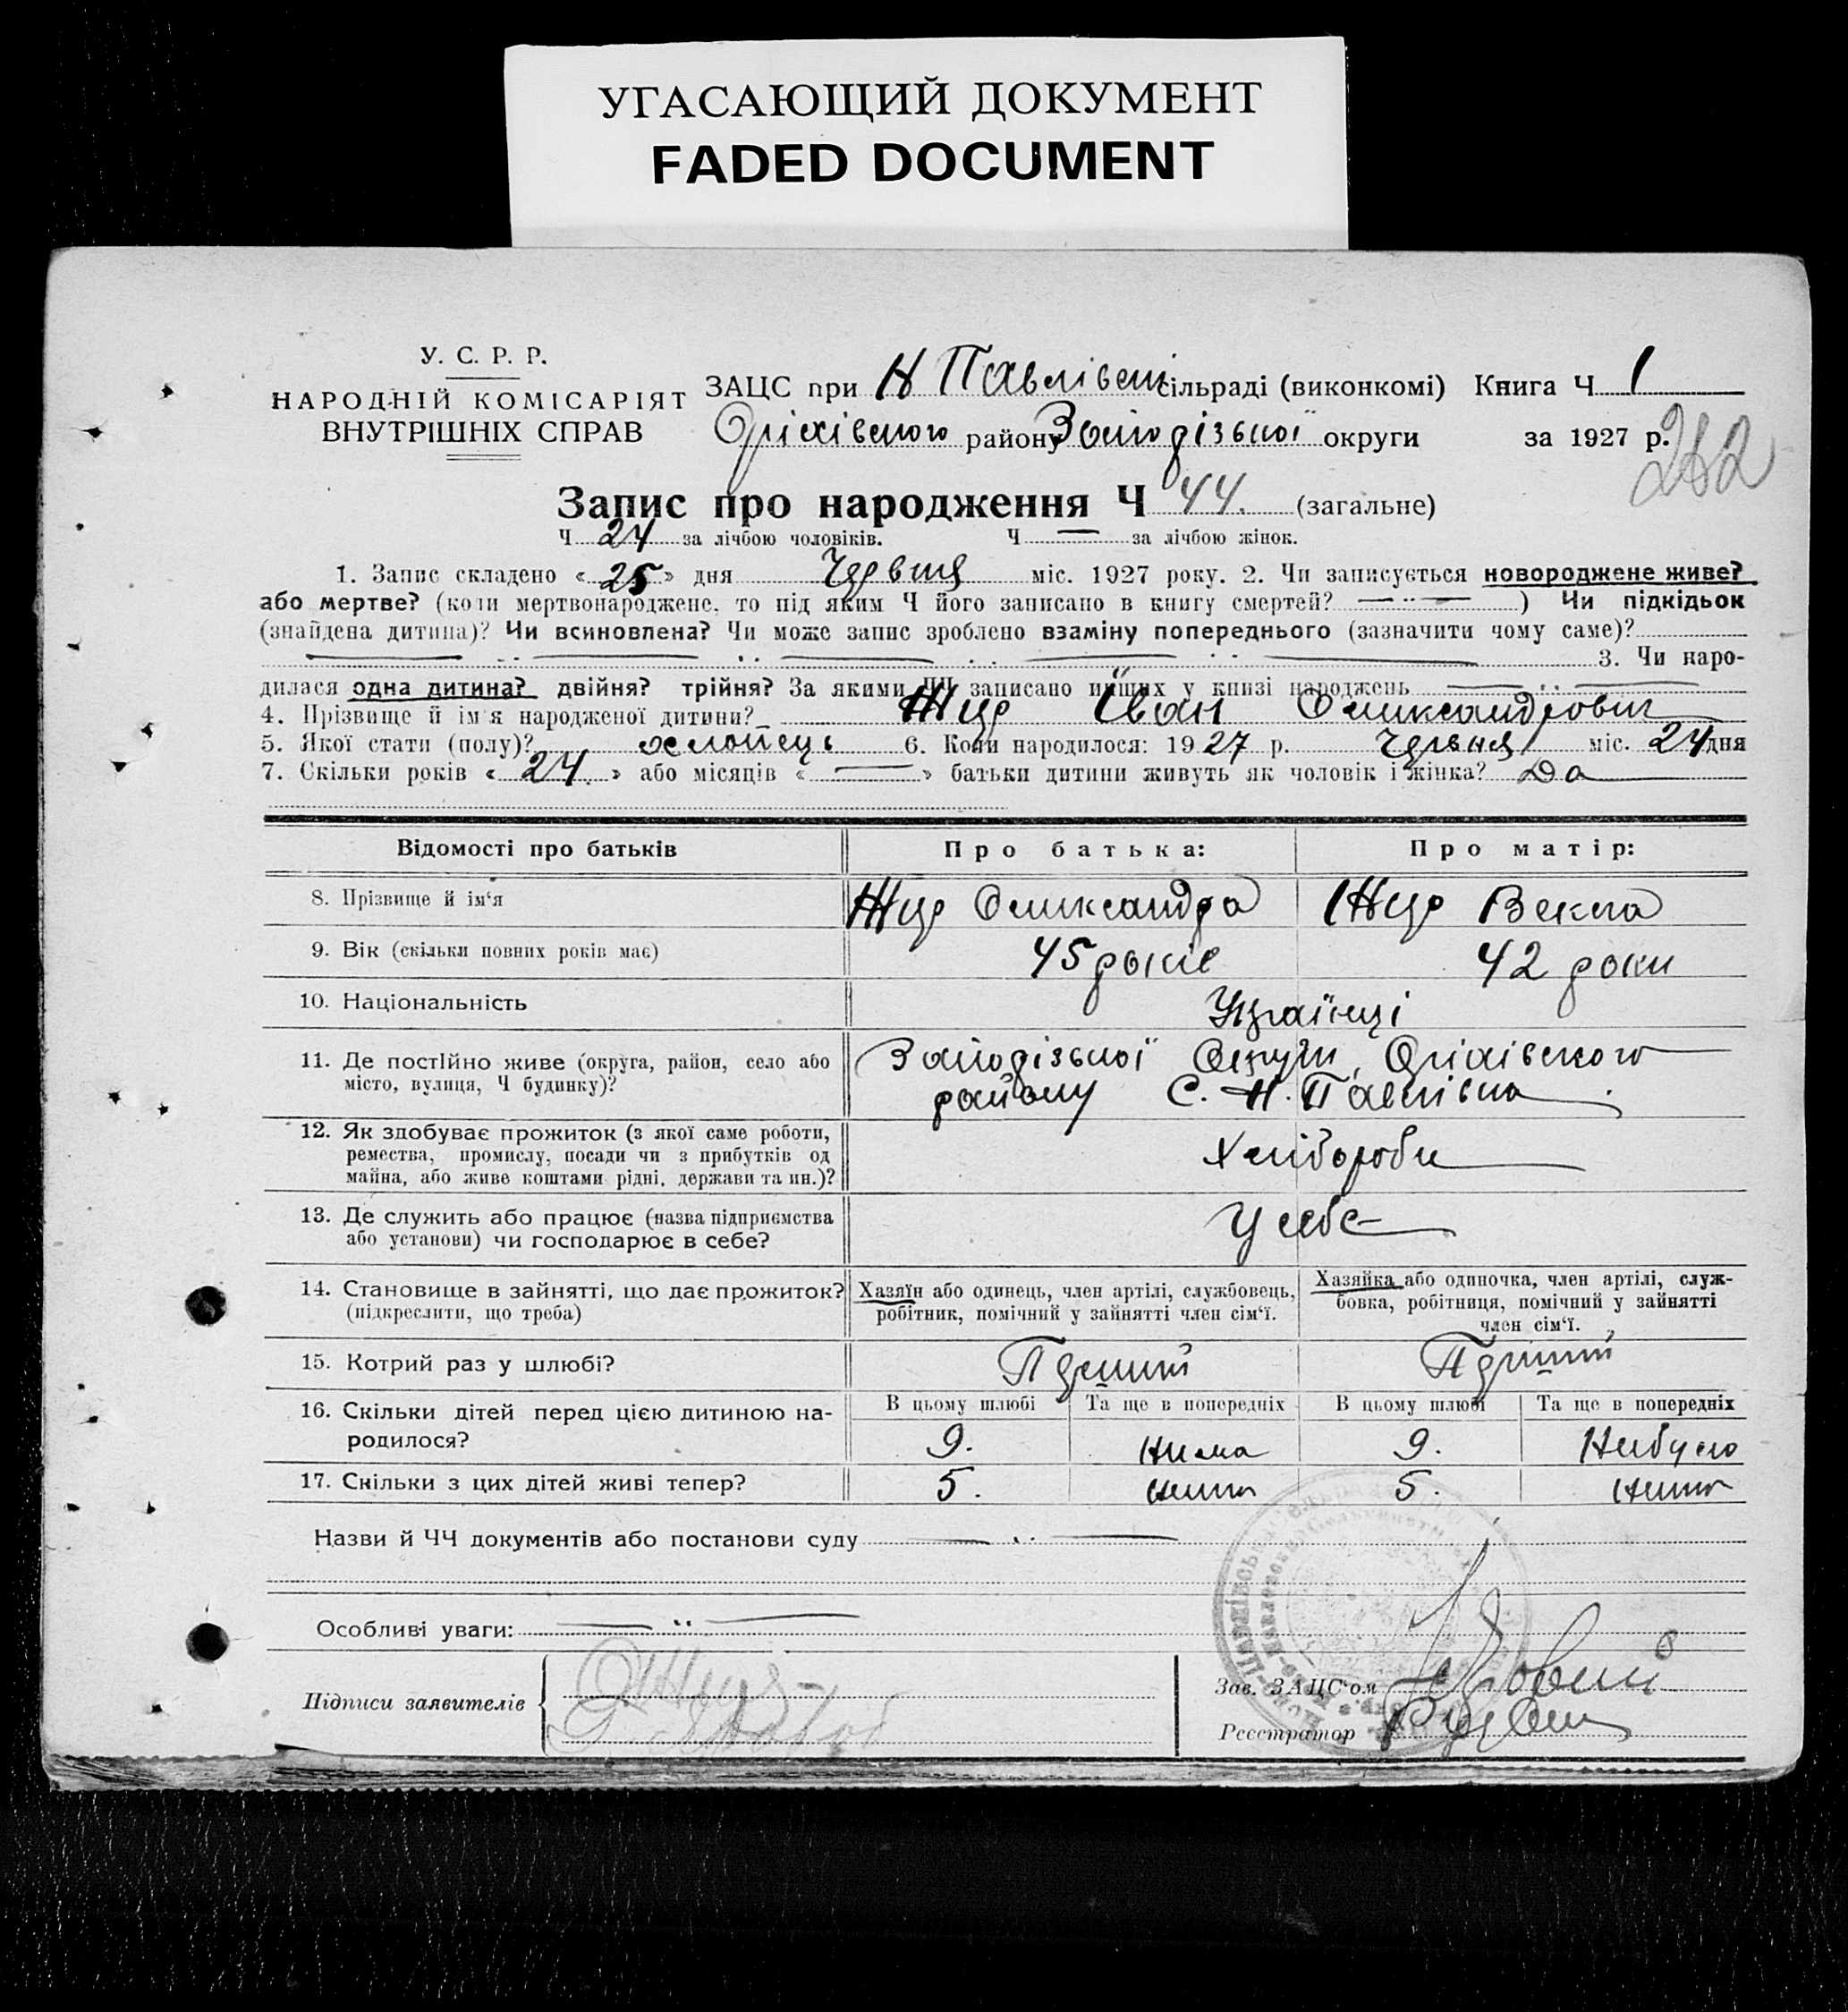 УГАСАЮЩИЙ ДОКУМЕНТ
FADED DOCUMENT
У. С. Р. Р.
НАРОДНІЙ КОМІСАРІЯТ
ВНУТРІШНІХ СПРАВ
ЗАЦС при Н Павлівськ сільраді (виконкомі) Книга Ч 1
Оріхівського району Запорізької округи за 1927 р.
262
Запис про народження Ч 44. (загальне)
Ч 24 за лічбою чоловіків. Ч — за лічбою жінок.
1. Запис складено « 25 » дня Червня міс. 1927 року. 2. Чи записується новороджене живе?
або мертве? (коли мертвонароджене, то під яким Ч його записано в книгу смертей? —··— ) Чи підкідьок
(знайдена дитина)? Чи всиновлена? Чи може запис зроблено взаміну попереднього (зазначити чому саме)?
3. Чи наро-
дилася одна дитина? двійня? трійня? За якими ЧЧ записано инших у книзі народжень —··—
4. Прізвище й ім'я народженої дитини? Жир Іван Олександрович
5. Якої стати (полу)? хлопець 6. Коли народилося: 1927 р. Червня міс. 24 дня
7. Скільки років « 24 » або місяців « — » батьки дитини живуть як чоловік і жінка? Да
Відомості про батьків Про батька: Про матір:
8. Прізвище й ім'я Жир Олександра Жир Векла
9. Вік (скільки повних років має) 45 років 42 роки
10. Національність Українці
11. Де постійно живе (округа, район, село або Запорізької Округи, Оріхівського
місто, вулиця, Ч будинку)? району С. Н. Павлівка.
12. Як здобуває прожиток (з якої саме роботи,
ремества, промислу, посади чи з прибутків од Хлібороби
майна, або живе коштами рідні, держави та ин.)?
13. Де служить або працює (назва підприємства У себе
або установи) чи господарює в себе?
14. Становище в зайнятті, що дає прожиток? Хазяїн або одинець, член артілі, службовець, Хазяйка або одиночка, член артілі, служ-
(підкреслити, що треба) робітник, помічний у зайнятті член сім'ї. бовка, робітниця, помічний у зайнятті
член сім'ї.
15. Котрий раз у шлюбі? Перший Перший
16. Скільки дітей перед цією дитиною на- В цьому шлюбі Та ще в попередніх В цьому шлюбі Та ще в попередніх
родилося? 9. Нима 9. Небуло
17. Скільки з цих дітей живі тепер? 5. нима 5. нима
Назви й ЧЧ документів або постанови суду —··—
Особливі уваги: —··—
Підписи заявителів
Зав. ЗАЦС'ом
Реєстратор